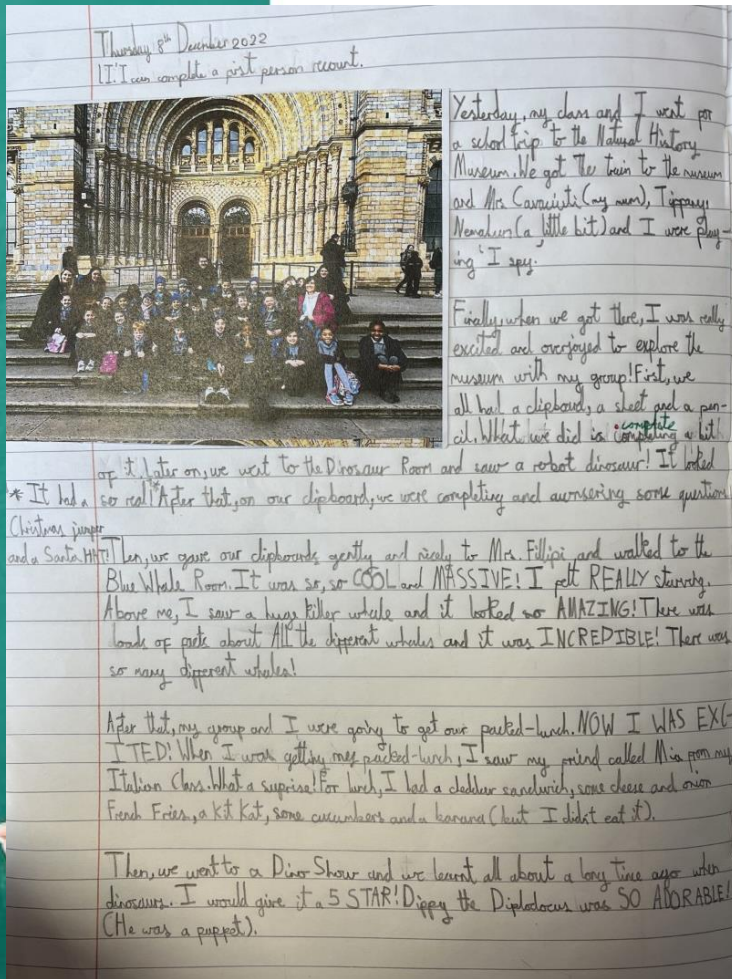 Thursday 8th December 2022
LI: I can complete a first person recount.
Yesterday, my class and I went for
a school trip to the Natural History
Museum. We got the train to the museum
and Mrs (my mum), Tippany,
(a little bit) and I were play-
ing 'I spy'.
Finally, when we got there, I was really
excited and overjoyed to explore the
museum with my group! First, we
all had a clipboard, a sheet and a pen-
cil. What we did is completing a bit
complete
of it. Later on, we went to the Dinosaur Room and saw a robot dinosaur! It looked
so real!* After that, on our clipboard, we were completing and awnsering some questions
* It had a
Christmas jumper
and a Santa HAT!
Then, we gave our clipboards gently and nicely to Mrs. Fillipi and walked to the
Blue Whale Room. It was so, so COOL and MASSIVE! I felt REALLY starving.
Above me, I saw a huge killer whale and it looked so AMAZING! There was
loads of facts about All the different whales and it was INCREDIBLE! There was
so many different whales!
After that, my group and I were going to get our packed-lunch. NOW I WAS EXC-
ITED! When I was getting my packed-lunch, I saw my friend called Mia from my
Italian Class. What a suprise! For lunch, I had a cheddar sandwich, some cheese and onion
French Fries, a Kit Kat, some cucumbers and a banana (but I didn't eat it).
Then, we went to a Dino Show and we learnt all about a long time ago when
dinosaurs. I would give it a 5 STAR! Dippy the Diplodocus was SO ADORABLE!
(He was a puppet).